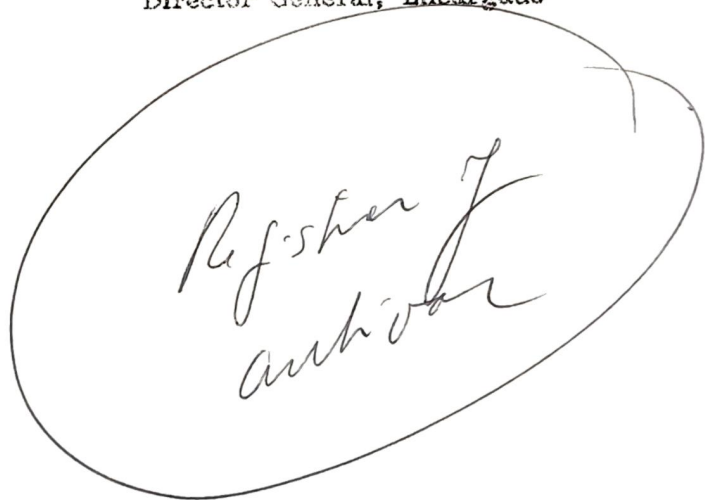 Director General, Encargado
Registrar y
archivar